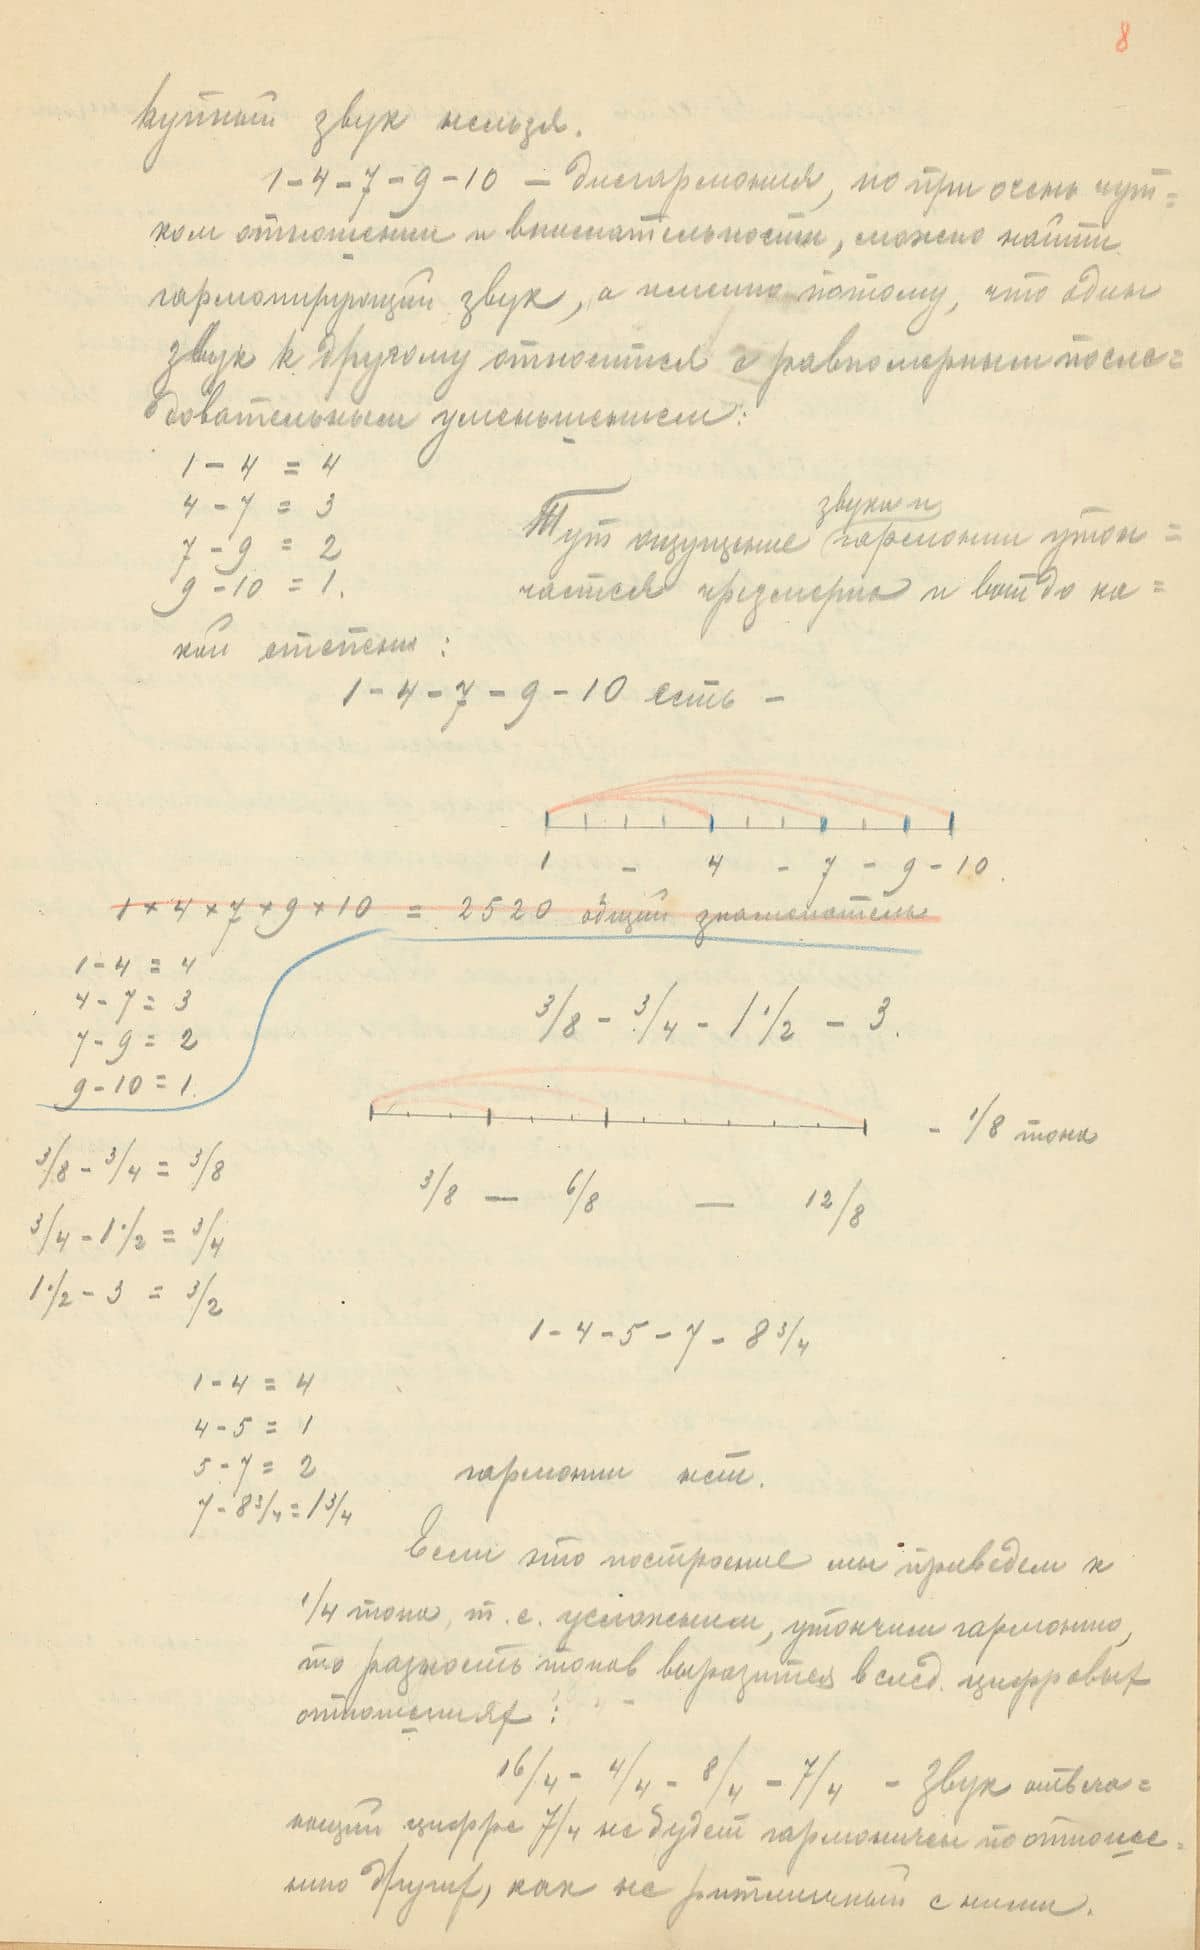 8
купный звук нельзя.
1-4-7-9-10 — дисгармония, но при очень чут=
ком отношении и внимательности, можно найти
гармонирующий звук, а именно потому, что один
звук к другому относится с равномерным после=
довательным уменьшением:
1 - 4 = 4
4 - 7 = 3
7 - 9 = 2
9 - 10 = 1.
звука и
Тут ощущение гармонии утон=
чается чрезмерно и вот до ка=
кой степени:
1 - 4 - 7 - 9 - 10 есть -
1 - 4 - 7 - 9 - 10.
1 × 4 × 7 × 9 × 10 = 2520 общий знаменатель
1 - 4 = 4
4 - 7 = 3
7 - 9 = 2
9 - 10 = 1.
3/8 - 3/4 - 1 1/2 - 3.
- 1/8 тона
3/8 — 6/8 — 12/8
3/8 - 3/4 = 3/8
3/4 - 1 1/2 = 3/4
1 1/2 - 3 = 3/2
1 - 4 - 5 - 7 - 8 3/4
1 - 4 = 4
4 - 5 = 1
5 - 7 = 2
7 - 8 3/4 = 1 3/4
гармонии нет.
Если это построение мы приведем к
1/4 тона, т.е. усложним, утончим гармонию,
то разность тонов выразится в след. цифровых
отношениях:
16/4 - 4/4 - 8/4 - 7/4 - звук отвеча=
ющий цифре 7/4 не будет гармоничен по отноше=
нию других, как не ритмичный с ними.